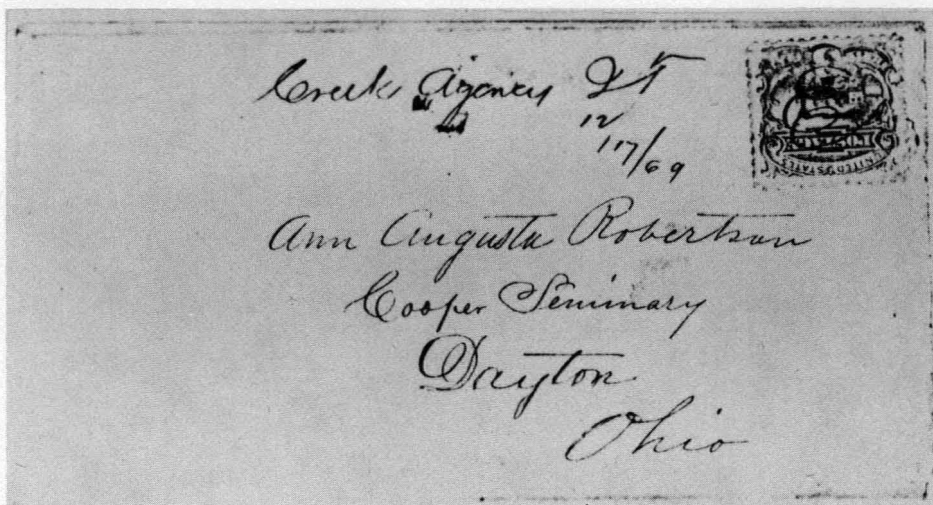 Creek Agency I T
12
/17/69
UNITED STATES
Ann Augusta Robertson
Cooper Seminary
Dayton
Ohio